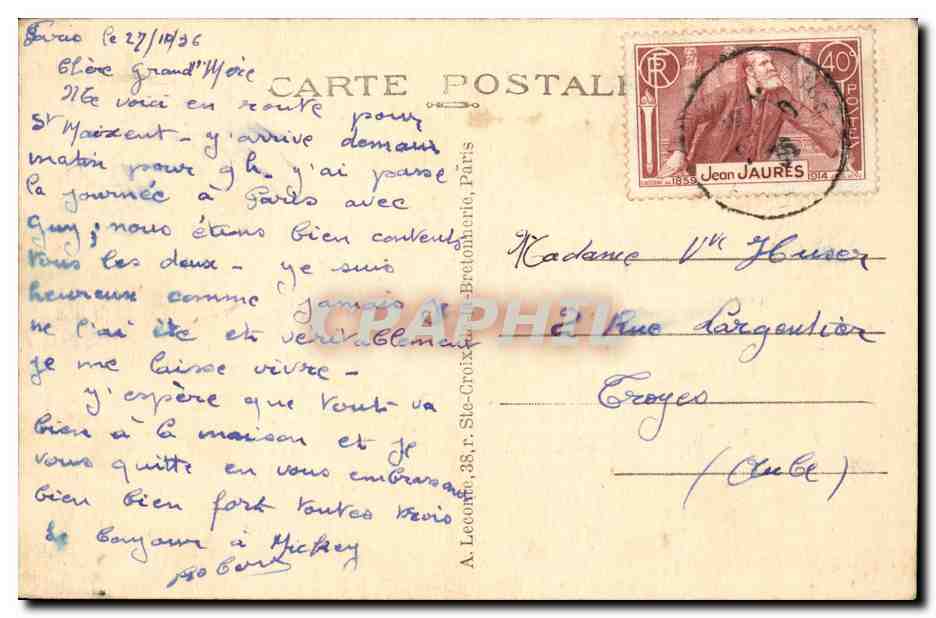 Paris le 27/10/36
Chère Grand'Mère
CARTE POSTALE
Me voici en route pour
St Maixent - j'arrive demain
matin pour 9h. j'ai passe
la journée à Paris avec
Guy; nous étions bien contents
tous les deux - je suis
heureux comme jamais je
ne l'ai été et veritablement
je me laisse vivre -
j'espère que tout va
bien à la maison et je
vous quitte en vous embrassant
bien bien fort toutes trois
Bonjour à Mickey
Robert
A. Leconte, 38, r. Ste-Croix-de-la-Bretonnerie, Paris
RF
40c
POSTES
Jean JAURES
1859
1914
Madame Vve Huser
2 Rue Largentier
Troyes
(Aube)
CPAPHIL